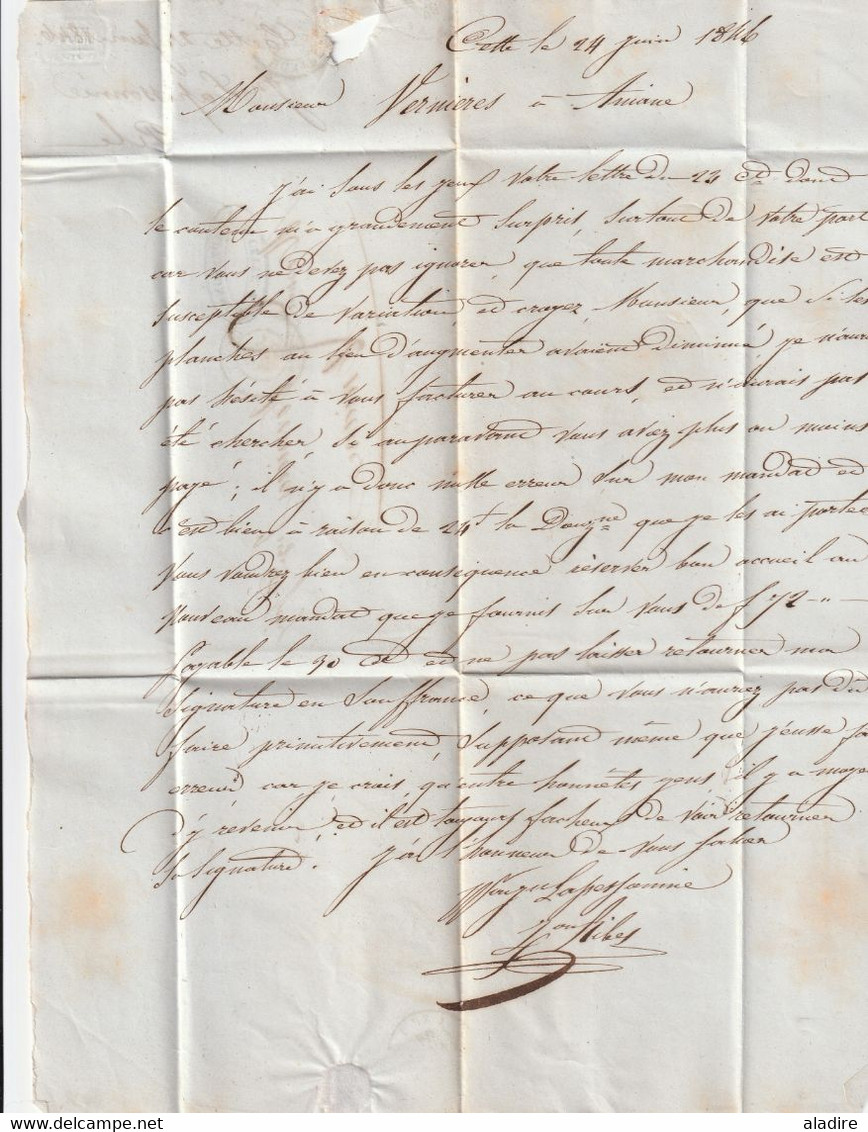 Cette le 24 juin 1846
Monsieur Vernières à Aniane
J'ai sous les yeux votre lettre du 23 ct dont
le contenu m'a grandement surpris, surtout de votre part
car vous ne devez pas ignorer, que toute marchandise est
susceptible de variation, et croyez, Monsieur, que si les
planches au lieu d'augmenter avaient diminué, je n'aurai
pas hésité à vous facturer au cours, et n'aurais pas
été chercher, si auparavant vous aviez plus ou moins
payé; il n'y a donc nulle erreur sur mon mandat et
c'est bien à raison de 24f la Douzne que je les ai portées
Vous voudrez bien en conséquence réserver bon accueil au
nouveau mandat que je fournis sur vous de f 72 -"-
payable le 30 ct et ne pas laisser retourner ma
signature en souffrance, ce que vous n'auriez pas dû
faire primitivement, supposant même que j'eusse fa
erreur, car je crois, qu'entre honnêtes gens, il y a moye
d'y revenir, et il est toujours facheux de voir retourner
sa signature. J'ai l'honneur de vous saluer
Lapeyssonnie
Ribes
aladire